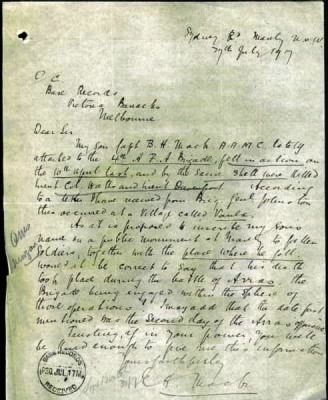 Sydney Rd Manly N.S.W
27th July 1917
O C
Base Records
Victoria Barracks
Melbourne
Dear Sir
My son Capt B. H. Mack A.A.M.C. lately
attached to the 4th A.F.A Brigade, fell in action on
the 10th April last, and by the same shell were killed
Lieut Col. Watts and Lieut Davenport. According
to a letter I have received from Brig Genl Johnston
this occurred at a Village called Vaulx.
As it is proposed to inscribe my sons
name on a public monument at Manly to fallen
soldiers, together with the place where he fell
would it be correct to say that his death
took place during the battle of Arras, the
Brigade being engaged within the sphere of
those operations. I may add that the date first
mentioned was the second day of the Arras
Trusting, if in your power, you will
be kind enough to give me this information
Yours faithfully
Mack
BASE RECORDS
30 JUL 1917
RECEIVED